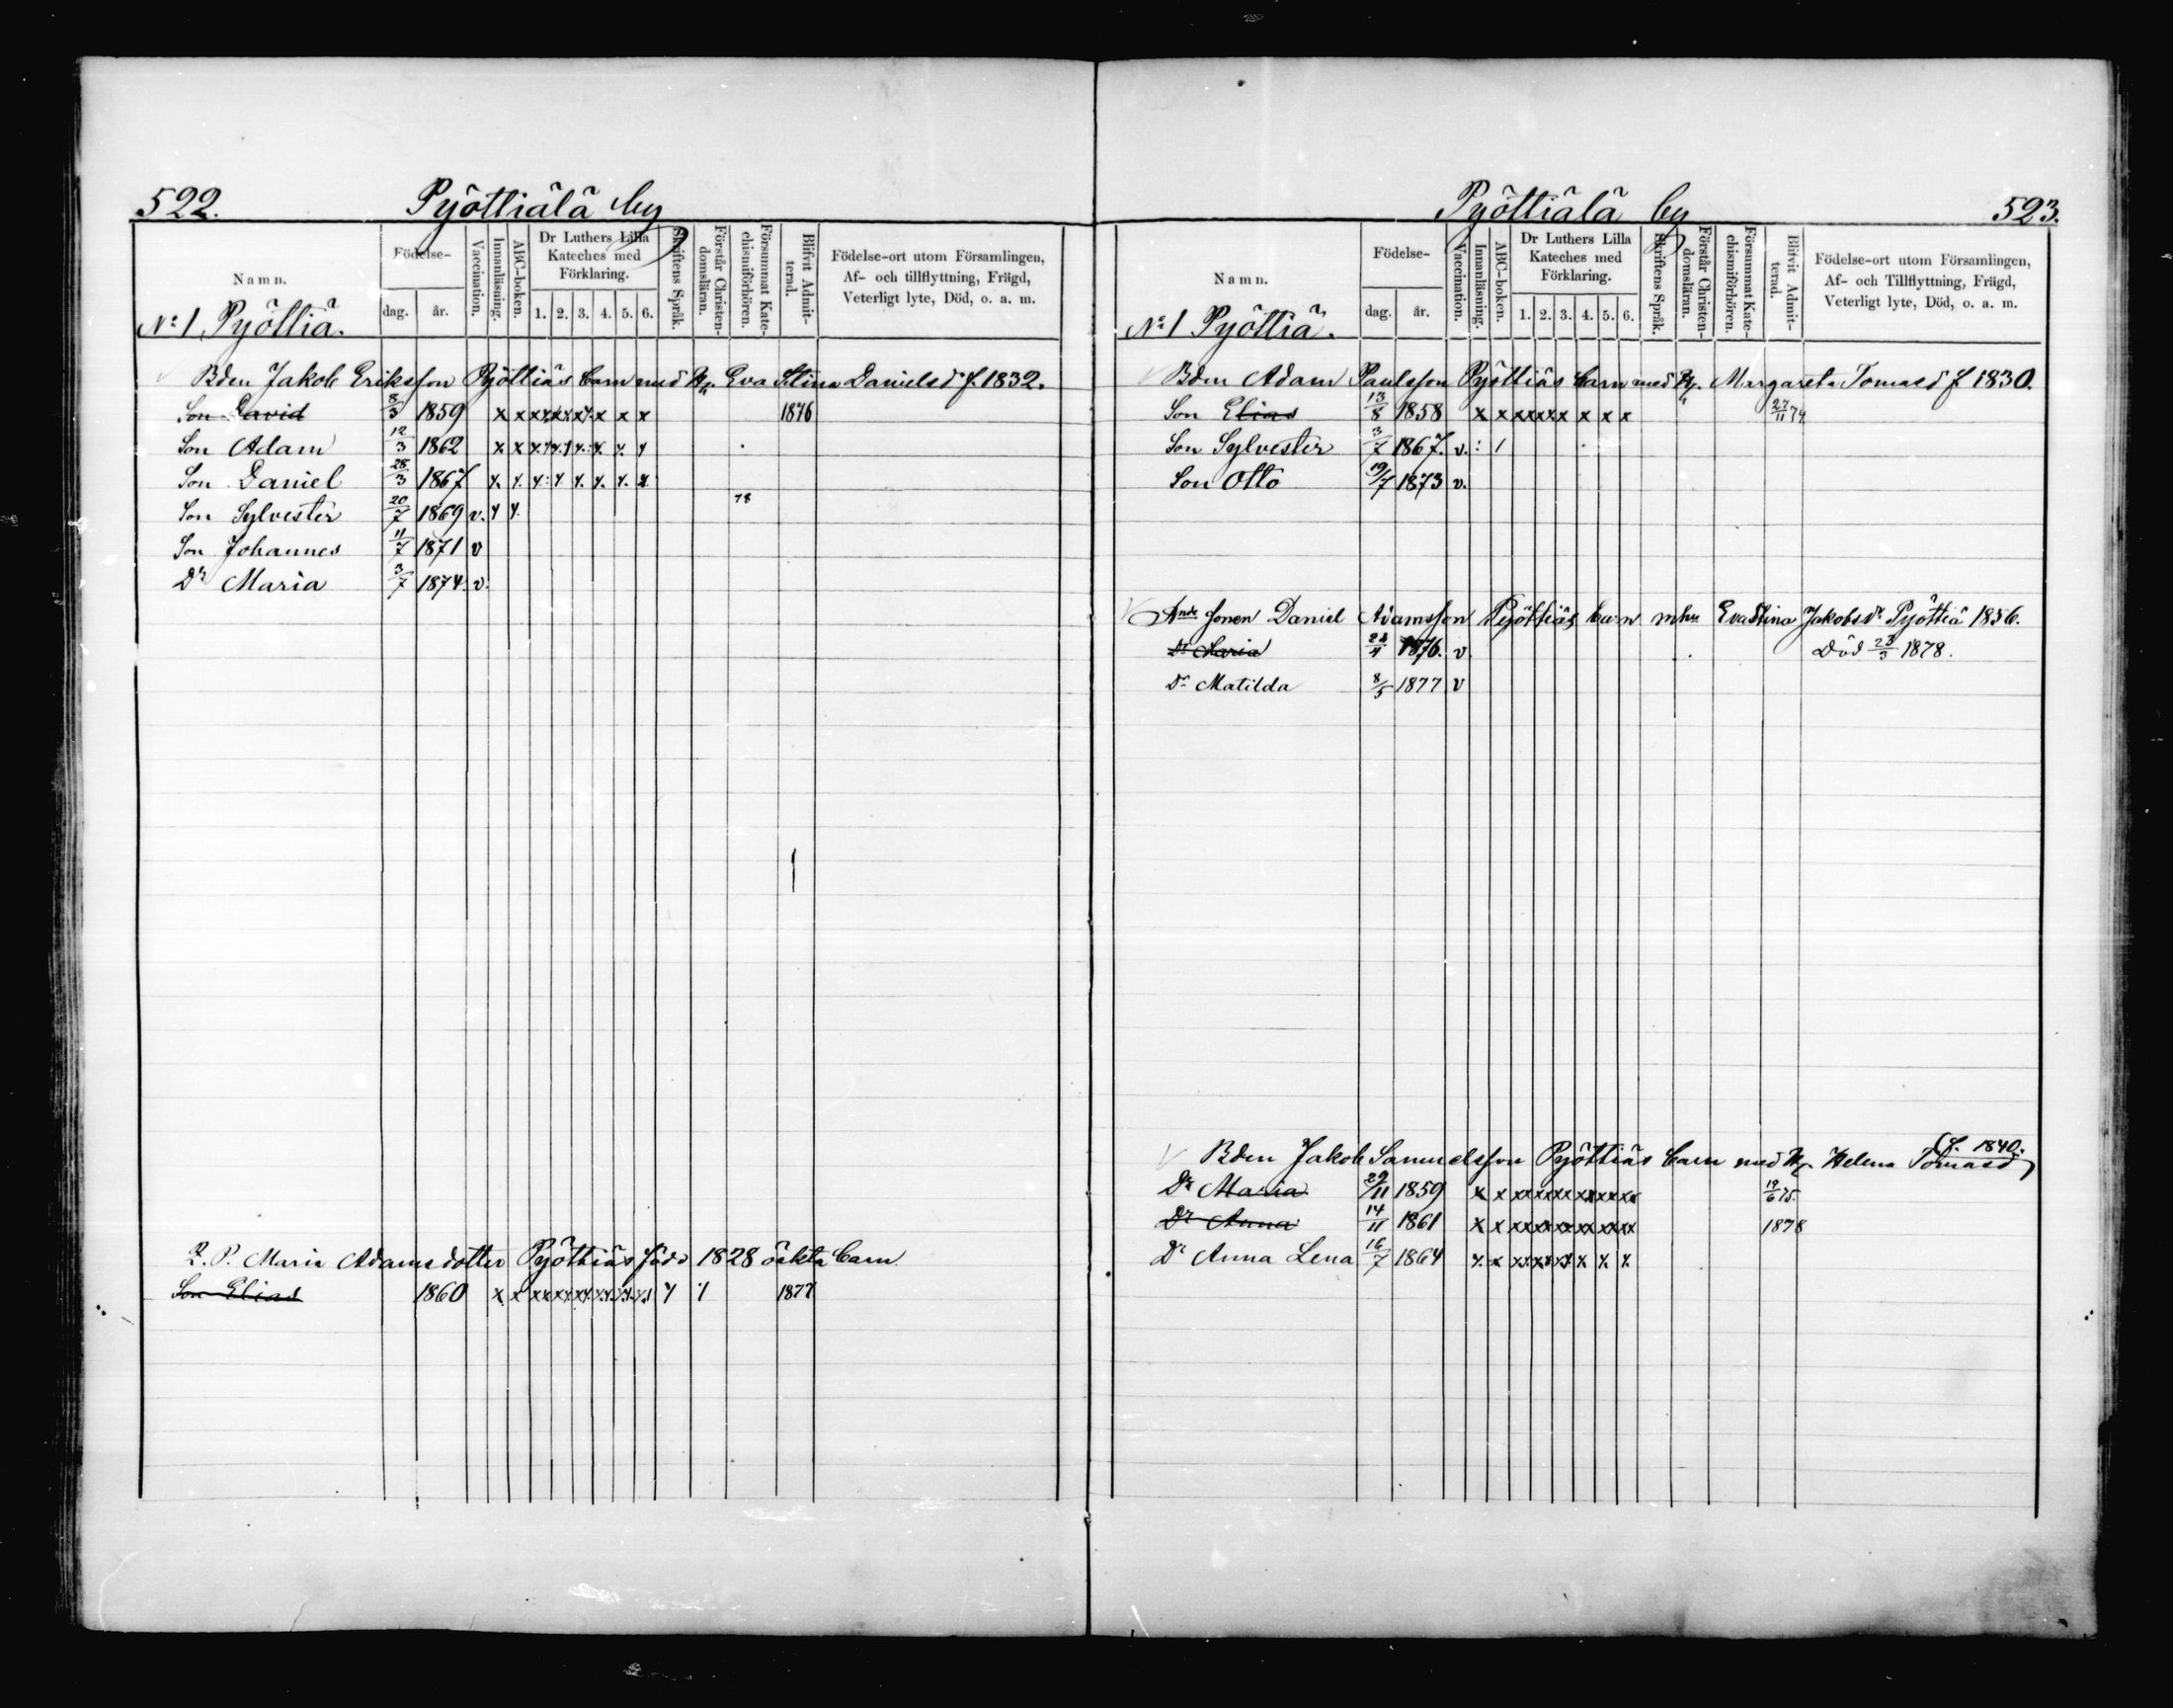 522. Pyöttiälä by
Namn. Födelse- dag. år. Vaccination. Innanläsning. ABC-boken. Dr Luthers Lilla Kateches med Förklaring. 1. 2. 3. 4. 5. 6. Skriftens Språk. Förstår Christendomsläran. Försummat Katechismiförhören. Blifvit Admitterad. Födelse-ort utom Församlingen, Af- och tillflyttning, Frägd, Veterligt lyte, Död, o. a. m.
No 1 Pyöttiä.
Bden Jakob Eriksson Pyöttiäs barn med H. Eva Stina Danielsdr f. 1832.
Son David 8/3 1859 x x x x x x x x x x 1876
Son Adam 12/3 1862 x x
Son Daniel 28/3 1867
Son Sylvester 20/7 1869 v. 78
Son Johannes 11/7 1871 v
Dr Maria 3/7 1874. v.
P. Maria Adamsdotter Pyöttiäs född 1828 oäkta barn
Son Elias 1860 x x 1877
Pyöttiälä by 523.
Namn. Födelse- dag. år. Vaccination. Innanläsning. ABC-boken. Dr Luthers Lilla Kateches med Förklaring. 1. 2. 3. 4. 5. 6. Skriftens Språk. Förstår Christendomsläran. Försummat Katechismiförhören. Blifvit Admitterad. Födelse-ort utom Församlingen, Af- och Tillflyttning, Frägd, Veterligt lyte, Död, o. a. m.
No 1 Pyöttiä.
Bden Adam Paulsson Pyöttiäs barn med H. Margareta Tomasd f 1830.
Son Elias 13/8 1858 x x x x x x x x x x 27/11 74
Son Sylvester 3/7 1867. v. : 1
Son Otto 19/7 1873 v.
Sonen Daniel Adamsson Pyöttiäs barn mhu Eva Stina Jakobsdr Pyöttiä 1856.
Dr Maria 1876. v Död 23/3 1878.
Dr Matilda 8/5 1877 v
Bden Jakob Samuelsson Pyöttiäs barn med H. Helena Tomasd (f. 1840.
Dr Maria 29/11 1859 x x x x x x x x x x 19/6 75.
Dr Anna 14/11 1861 x x x x x x x x x x 1878
Dr Anna Lena 16/7 1864